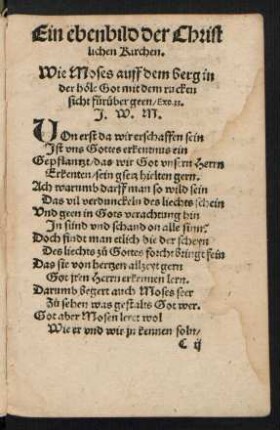 Ein ebenbild der Christ
lichen Kirchen.
Wie Moses auff dem berg in
der höle Got mit dem rucken
sicht fürüber geen/ Exo.
J. W. M.
VOn erst da wir erschaffen sein
Ist vns Gottes erkentnus ein
Gepflantzt/ das wir Got vnsern Herrn
Erkenten/ sein gsetz hielten gern.
Ach warumb darff man so wild sein
Das vil verdunckeln des liechts schein
Vnd geen in Gots verachtung hin
In sünd vnd schand on alle sinn.
Doch findt man etlich die der scheyn
Des liechts zu Gottes forcht bringt fein
Das sie von hertzen allzeyt gern
Got jren Herrn erkennen lern.
Darumb begert auch Moses seer
Zů sehen was gestalts Got wer.
Got aber Mosen leret wol
Wie er vnd wir jn kennen soln/
C ij